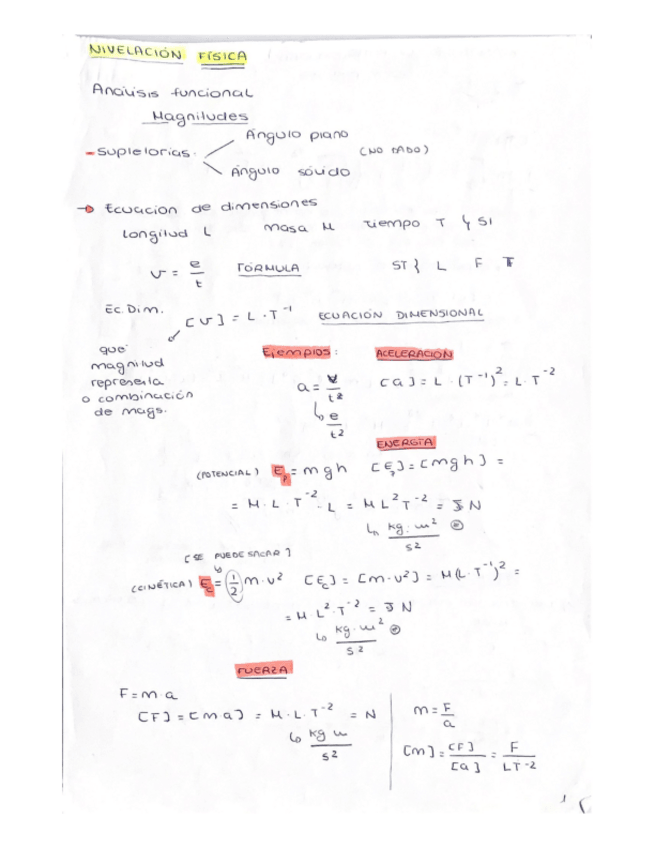 NIVELACIÓN FÍSICA
Análisis funcional
Magnitudes
- Supletorias.
Ángulo plano
(NO DADO)
Ángulo sólido
→ Ecuacion de dimensiones
longitud L   masa M   tiempo T } SI
v = e/t   FÓRMULA   ST } L F T
Ec. Dim.
[v] = L · T⁻¹   ECUACIÓN DIMENSIONAL
que
magnitud
representa
o combinación
de mags.
Ejemplos:   ACELERACIÓN
a = v/t   [a] = L · (T⁻¹)² = L · T⁻²
↳ e/t²
ENERGÍA
(POTENCIAL) Ep = m g h   [Ep] = [m g h] =
= M · L · T⁻² · L = M L² T⁻² = J N
↳ kg · m²/s²
[SE PUEDE SACAR]
(CINÉTICA) Ec = 1/2 m · v²   [Ec] = [m · v²] = M (L · T⁻¹)² =
= M L² · T⁻² = J N
↳ kg · m²/s²
FUERZA
F = m a
[F] = [m a] = M · L · T⁻² = N
↳ kg m/s²
m = F/a
[m] = [F]/[a] = F/LT⁻²
1